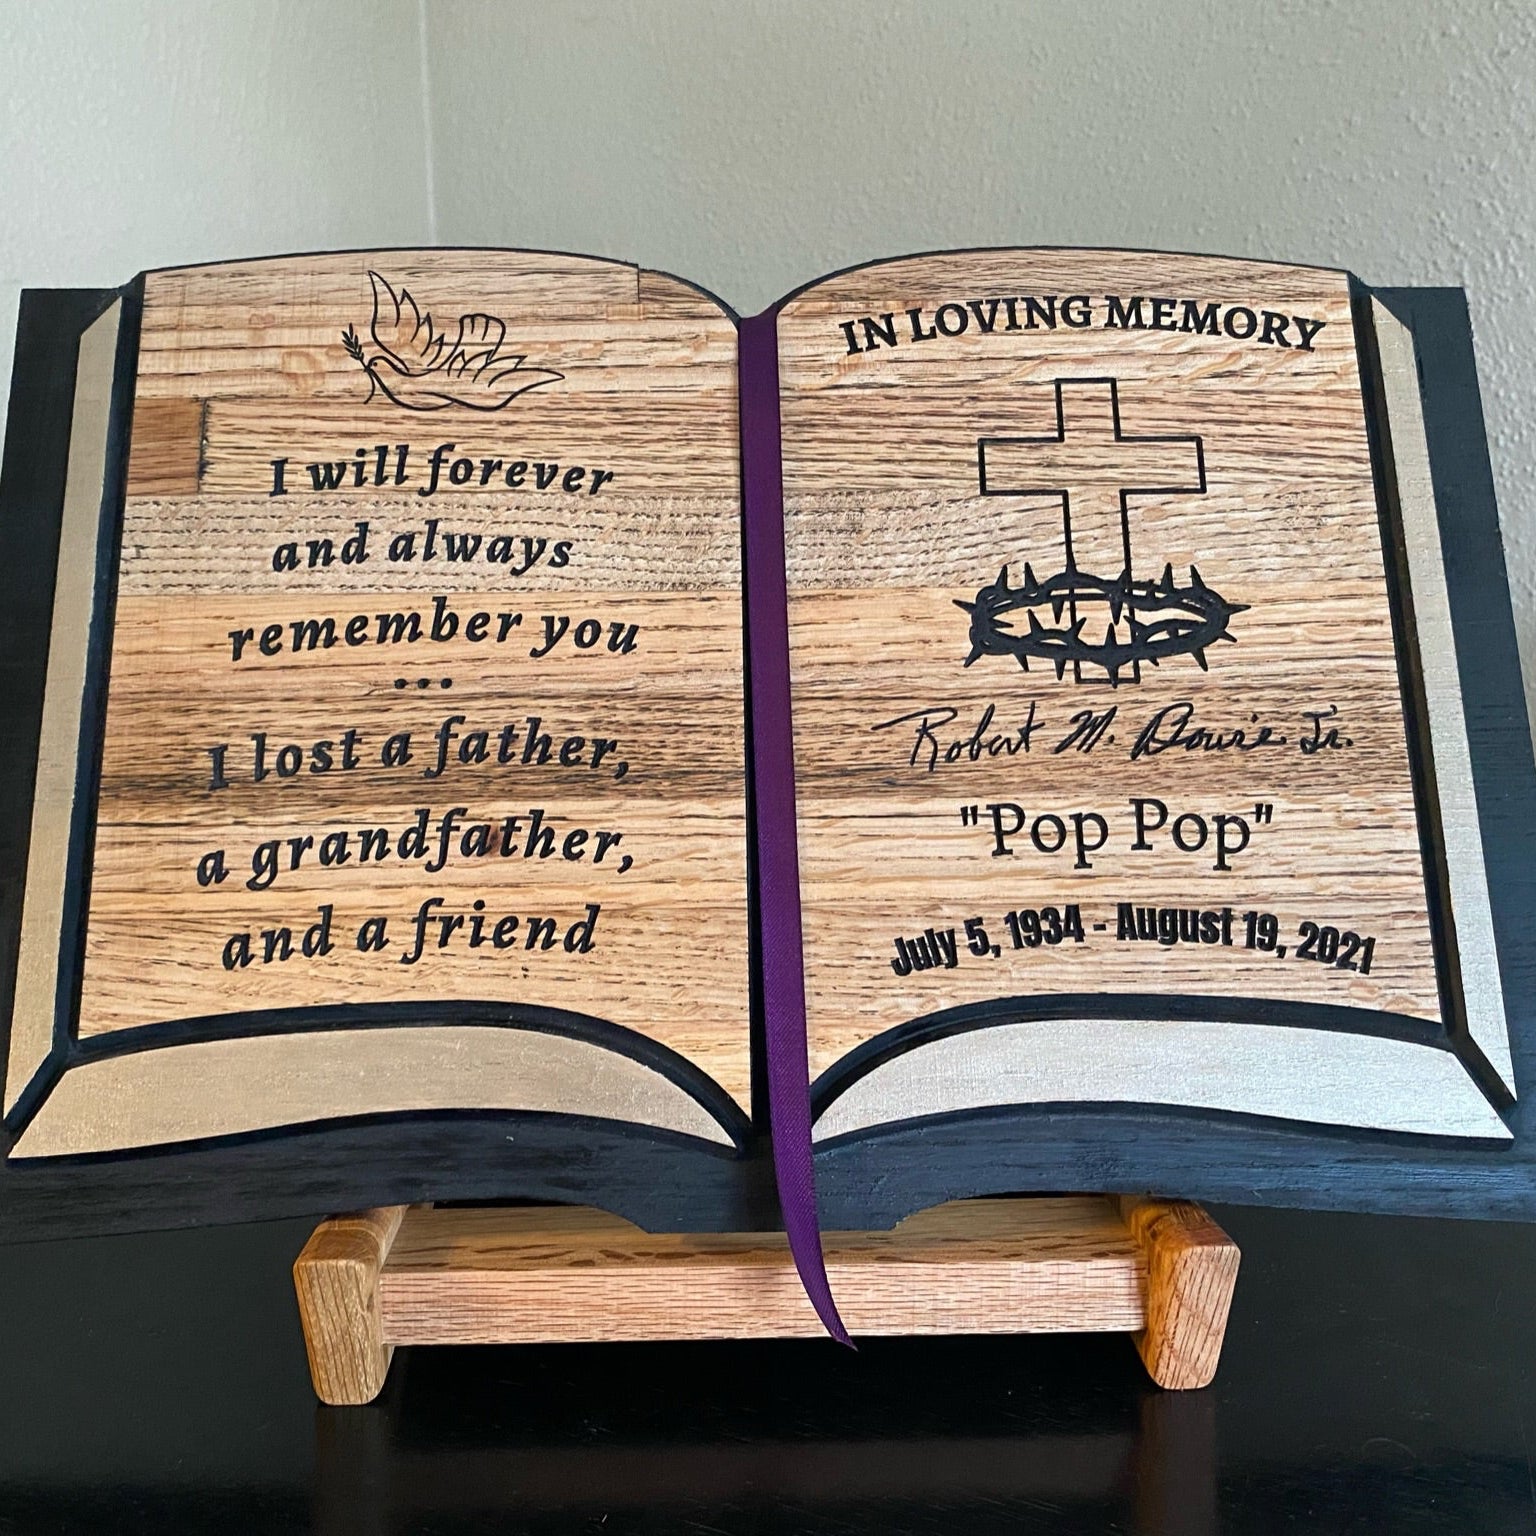 I will forever
and always
remember you
...
I lost a father,
a grandfather,
and a friend
IN LOVING MEMORY
Robert M. Bowie Jr.
"Pop Pop"
July 5, 1934 - August 19, 2021